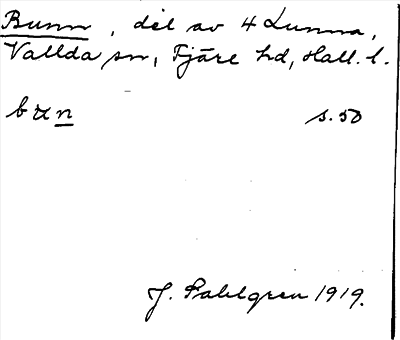 Bunn, del av 4 Lunna,
Vallda sn, Fjäre hd, Hall. l.
bun s. 50
J. Sahlgren 1919.